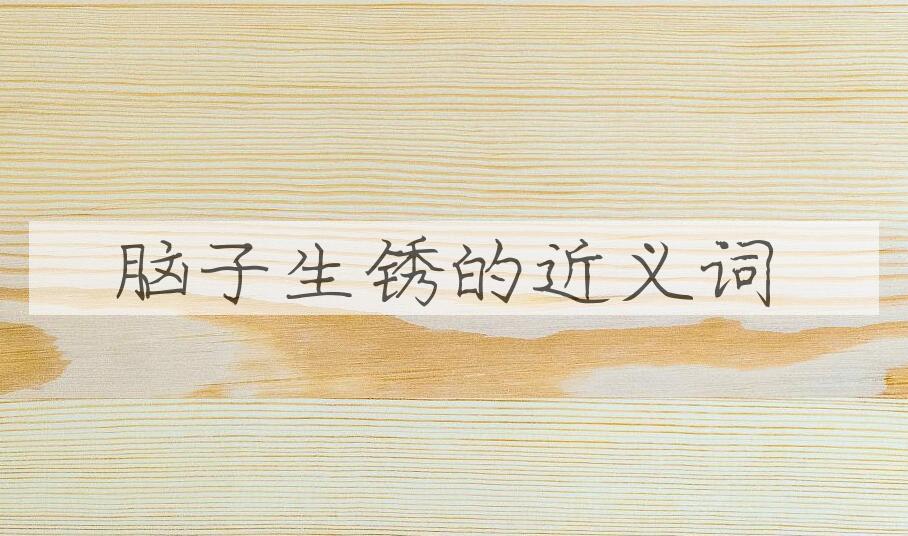 脑子生锈的近义词